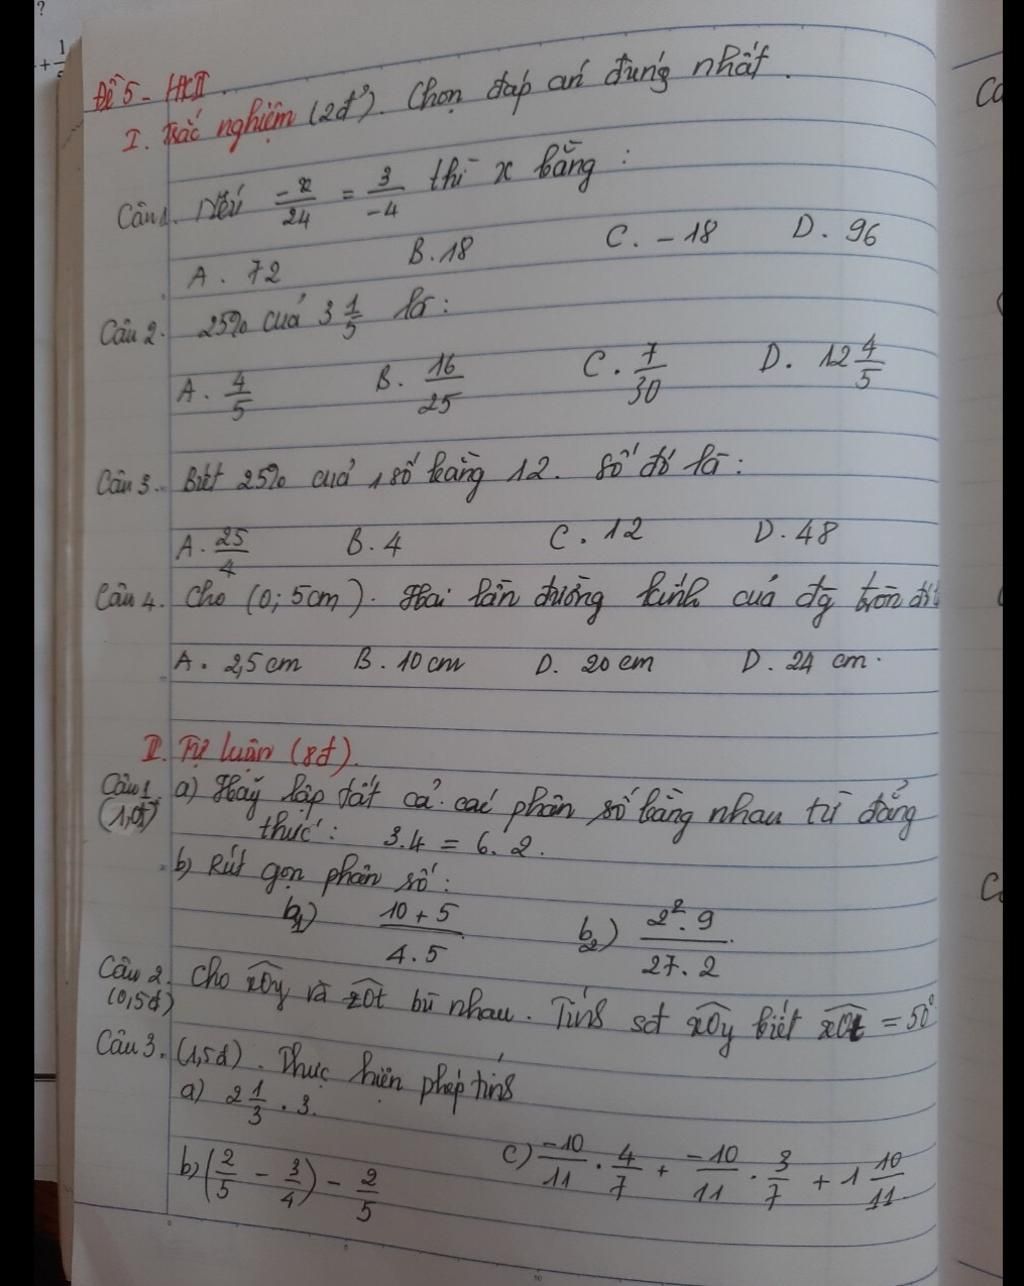 Đề 5 - HKII.
I. Trắc nghiệm (2đ). Chọn đáp án đúng nhất.
Câu 1. Nếu -x/24 = 3/-4 thì x bằng:
A. 72 B. 18 C. -18 D. 96
Câu 2. 25% của 3 1/5 là:
A. 4/5 B. 16/25 C. 7/30 D. 12 4/5
Câu 3. Biết 25% của 1 số bằng 12. Số đó là:
A. 25/4 B. 4 C. 12 D. 48
Câu 4. Cho (0; 5cm). Hai lần đường kính của đg tròn đó
A. 2,5 cm B. 10 cm D. 20 cm D. 24 cm.
II. Tự luận (8đ).
Câu 1. a) Hãy lập tất cả các phân số bằng nhau từ đẳng
(1,0đ) thức: 3.4 = 6.2.
b) Rút gọn phân số:
b1) 10 + 5 / 4.5 b2) 2². 9 / 27. 2
Câu 2. Cho xOy và zOt bù nhau. Tính sđ xOy biết xOt = 50°
(0,5đ)
Câu 3. (1,5đ). Thực hiện phép tính
a) 2 1/3 . 3.
b) (2/5 - 3/4) - 2/5 c) -10/11 . 4/7 + -10/11 . 3/7 + 1 10/11